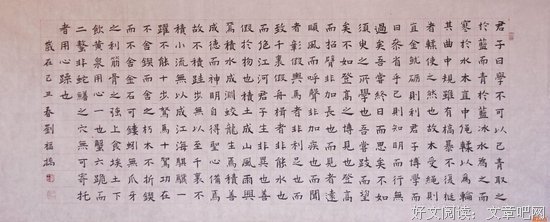 君子曰學不可以已青取之
於藍而青於藍冰水為之而
寒於水木直中繩輮以為輪
其曲中規雖有槁暴不復挺
者輮使之然也故木受繩則
直金就礪則利君子博學而
日參省乎己則知明而行無
過矣吾嘗終日而思矣不如
須臾之所學也吾嘗跂而望
矣不如登高之博見也登高
而招臂非加長也而見者遠
順風而呼聲非加疾也而聞
者彰假輿馬者非利足也而
致千裏假舟楫者非能水也
而絕江河君子生非異也善
假於物也積土成山風雨興
焉積水成淵蛟龍生焉積善
成德而神明自得聖心備焉
故不積跬步無以至千裏不
積小流無以成江海騏驥一
躍不能十步駑馬十駕功在
不舍鍥而舍之朽木不折鍥
而不舍金石可鏤螾無爪牙
之利筋骨之強上食埃土下
飲黃泉用心一也蟹六跪而
二螯非蛇鱔之穴無可寄托
者用心躁也
歲在己丑春劉福
好文阅读：文章吧网